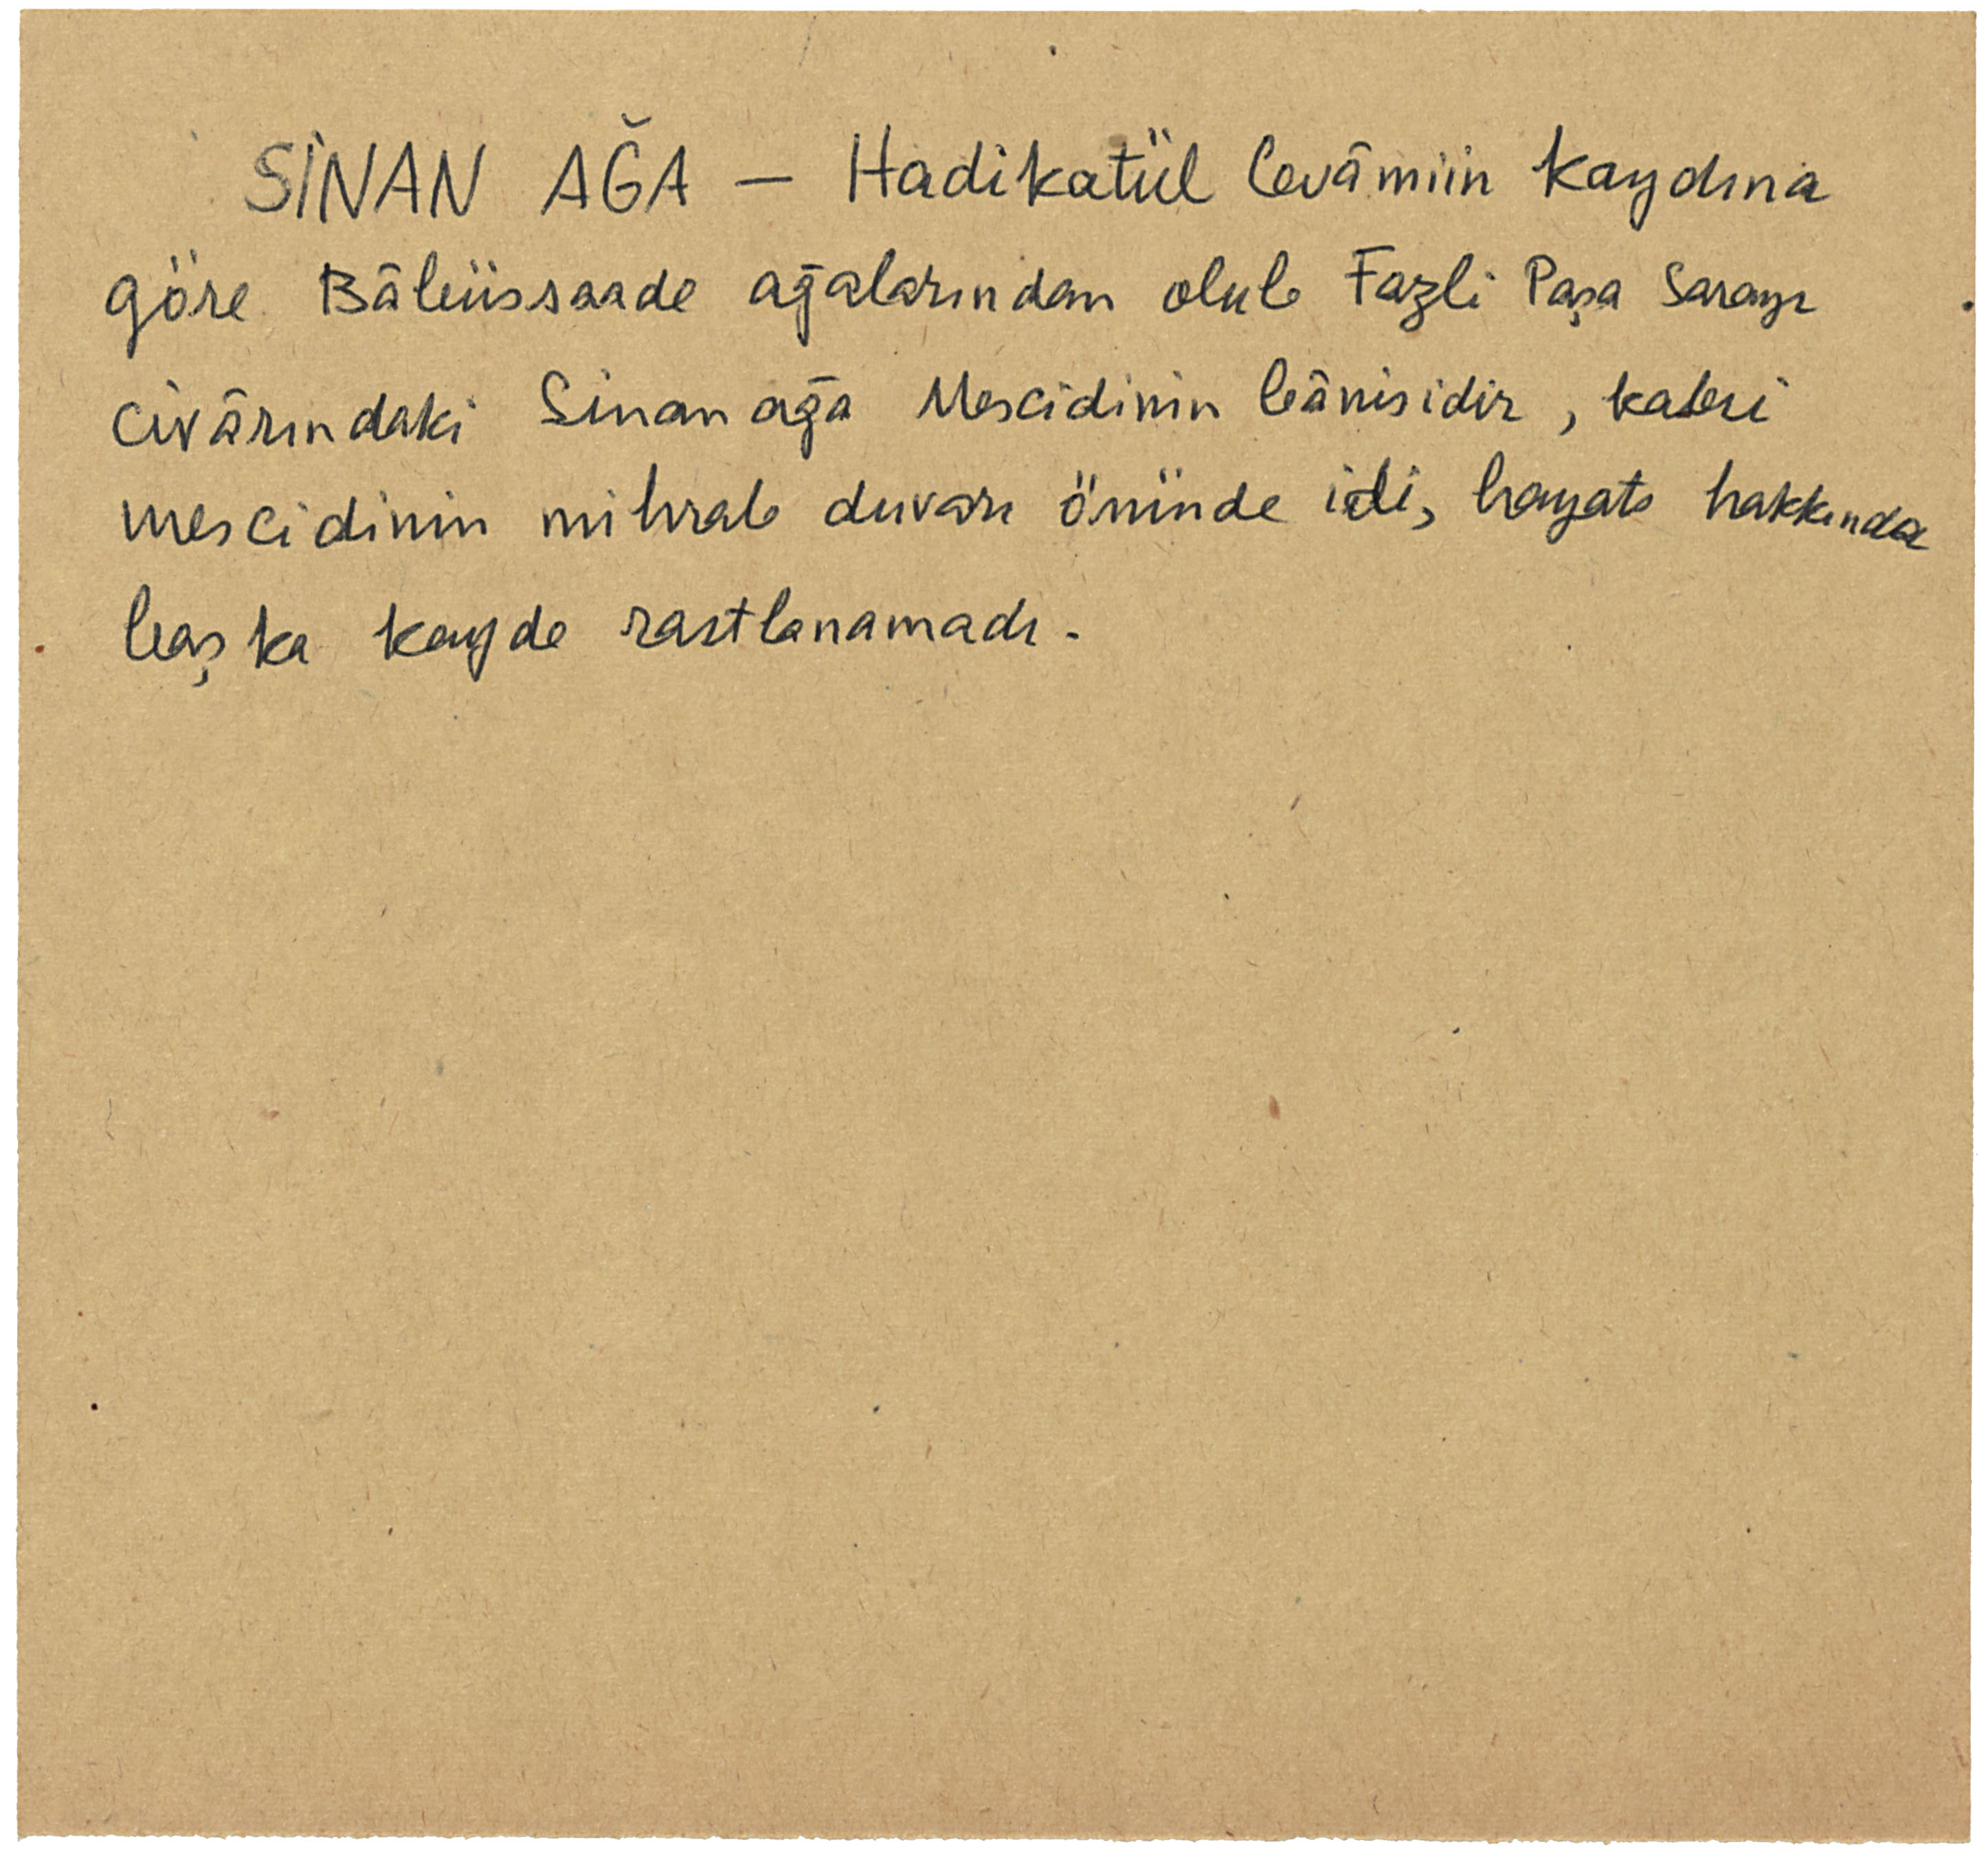 SİNAN AĞA — Hadikatül Cevâmiin kaydına
göre Bâbüssaade ağalarından olub Fazli Paşa Sarayı
civârındaki Sinanağa Mescidinin bânisidir, kabri
mescidinin mihrab duvarı önünde idi, hayatı hakkında
başka kayde rastlanamadı.